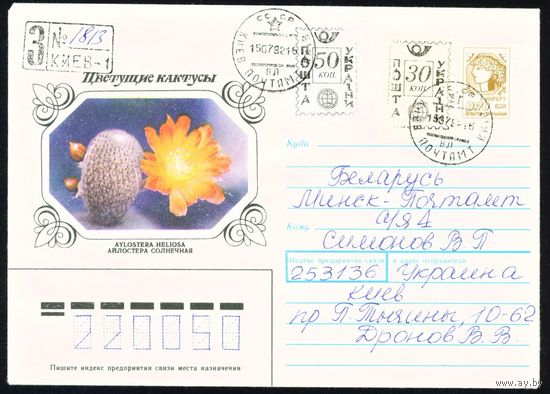 З № 1813
КИЕВ-1
СССР
15079216
КИЕВ ПОЧТАМТ
ВЛ
ПОШТА 50 КОП. УКРАЇНИ
ПОШТА 30 КОП. УКРАЇНИ
15079216
ВЛ
ПОЧТАМТ
Цветущие кактусы
AYLOSTERA HELIOSA
АЙЛОСТЕРА СОЛНЕЧНАЯ
Куда Беларусь
Минск-Почтамт
а/я
Кому Симонов В.П.
Индекс предприятия связи и адрес отправителя
253136 Украина
Киев
пр П.Тычины, 10-62
Дронов В.В
220050
Пишите индекс предприятия связи места назначения
www.ay.by